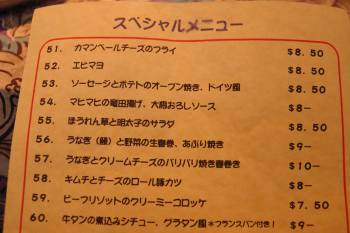 スペシャルメニュー
51. カマンベールチーズのフライ $8.50
52. エビマヨ $8.50
53. ソーセージとポテトのオーブン焼き、ドイツ風 $8.50
54. マヒマヒの竜田揚げ、大根おろしソース $8-
55. ほうれん草と明太子のサラダ $8.50
56. うなぎ（鰻）と野菜の生春巻、あぶり焼き $9-
57. うなぎとクリームチーズのパリパリ焼き春巻き $10-
58. キムチとチーズのロール豚カツ $8-
59. ビーフリゾットのクリーミーコロッケ $7.50
60. 牛タンの煮込みシチュー、グラタン風 *フランスパン付き! $9-